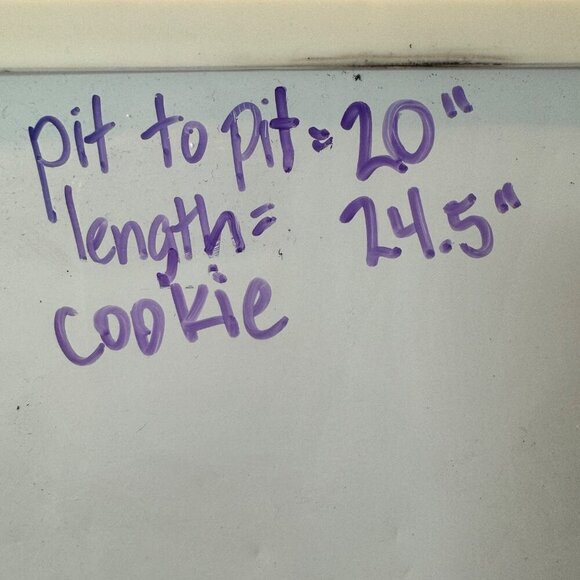 pit to pit = 20"
length = 24.5"
cookie